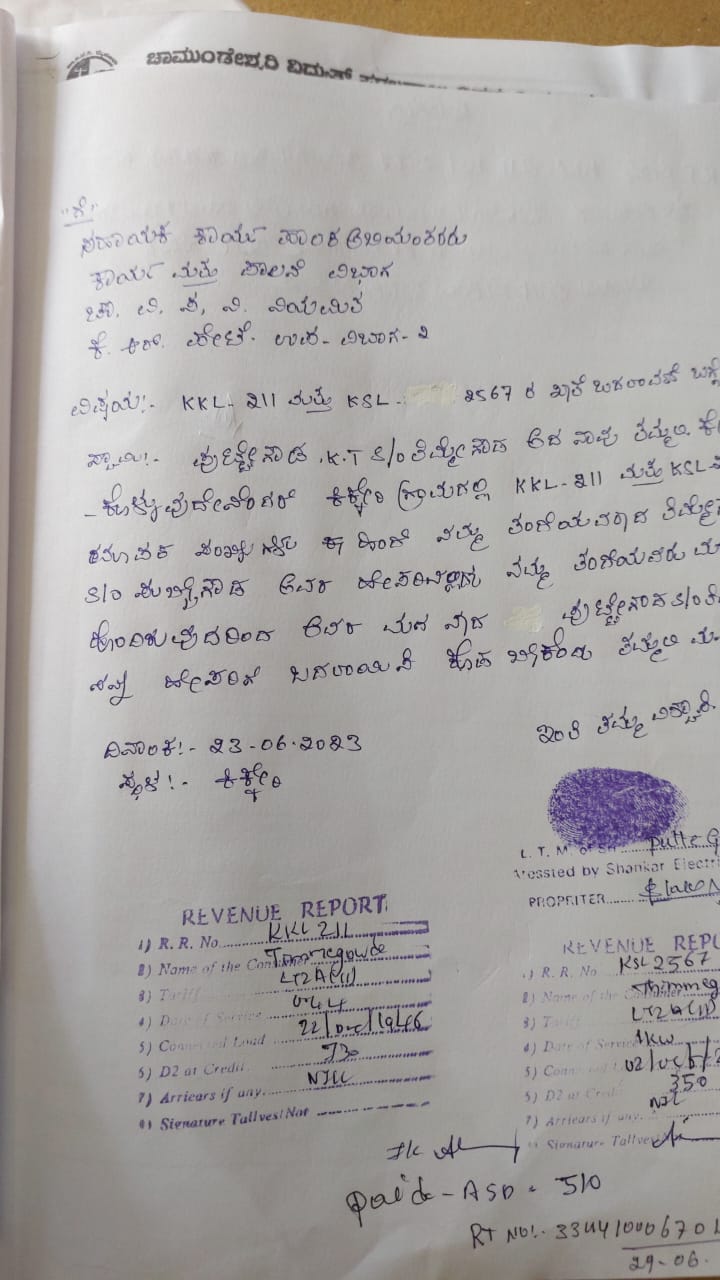 ಚಾಮುಂಡೇಶ್ವರಿ ವಿದ್ಯುತ್
"ಗೆ"
ಸಹಾಯಕ ಕಾರ್ಯ ಪಾಲಕ ಅಭಿಯಂತರರು
ಕಾರ್ಯ ಮತ್ತು ಪಾಲನೆ ವಿಭಾಗ
ಚಾ. ವಿ. ಸ. ನಿ. ನಿಯಮಿತ
ಕೆ. ಆರ್. ಪೇಟೆ. ಉಪ-ವಿಭಾಗ-2
ವಿಷಯ:- KKL-211 ಮತ್ತು KSL- 2567 ರ ಖಾತೆ ಬದಲಾವಣೆ ಬಗ್ಗೆ
ಸ್ವಾಮಿ:- ಪುಟ್ಟೇಗೌಡ .K.T S/o ತಿಮ್ಮೇಗೌಡ ಆದ ನಾವು ತಮ್ಮಲ್ಲಿ ಕೇ
-ಕೊಳ್ಳುವುದೇನೆಂದರೆ ಕಿಕ್ಕೇರಿ ಗ್ರಾಮದಲ್ಲಿ KKL-211 ಮತ್ತು KSL-
ಸ್ಥಾವರ ಸಂಖ್ಯೆಗಳು ಈ ಹಿಂದೆ ನಮ್ಮ ತಂದೆಯವರಾದ ತಿಮ್ಮೇಗ
S/o ಸುಬ್ಬೇಗೌಡ ಅವರ ಹೆಸರಿನಲ್ಲಿದ್ದು ನಮ್ಮ ತಂದೆಯವರು ಮ
ಹೊಂದಿರುವುದರಿಂದ ಅವರ ಮಗ ನಾದ ಪುಟ್ಟೇಗೌಡ S/o ತಿ
ನನ್ನ ಹೆಸರಿಗೆ ಬದಲಾಯಿಸಿ ಕೊಡ ಬೇಕೆಂದು ತಮ್ಮಲ್ಲಿ ಮ
ಇಂತಿ ತಮ್ಮ ವಿಶ್ವಾಸಿ.
ದಿನಾಂಕ:- 23-06-2023
ಸ್ಥಳ:- ಕಿಕ್ಕೇರಿ
L. T. M. of Sri Putte G
Messted by Shankar Electri
PROPRITER
REVENUE REPORT
1) R. R. No KKL 211
2) Name of the Consumer Timmegowda
3) Tariff LT2A(ii)
4) Date of Service 0.44
5) Connected Load 22/Dec/1966
6) D2 at Credit 730
7) Arriears if any. NILL
8) Signarure Tallves/Not
REVENUE REPO
1) R. R. No KSL 2567
2) Name of the Consumer Thimmeg
3) Tariff LT2A(ii)
4) Date of Service 1KW
5) Connected L 02/Oct/2
6) D2 at Credit 350
7) Arriears if any. NIL
8) Signarure Tallves/
Paid - ASD = 510
RT NO:- 334410006701
29-06.